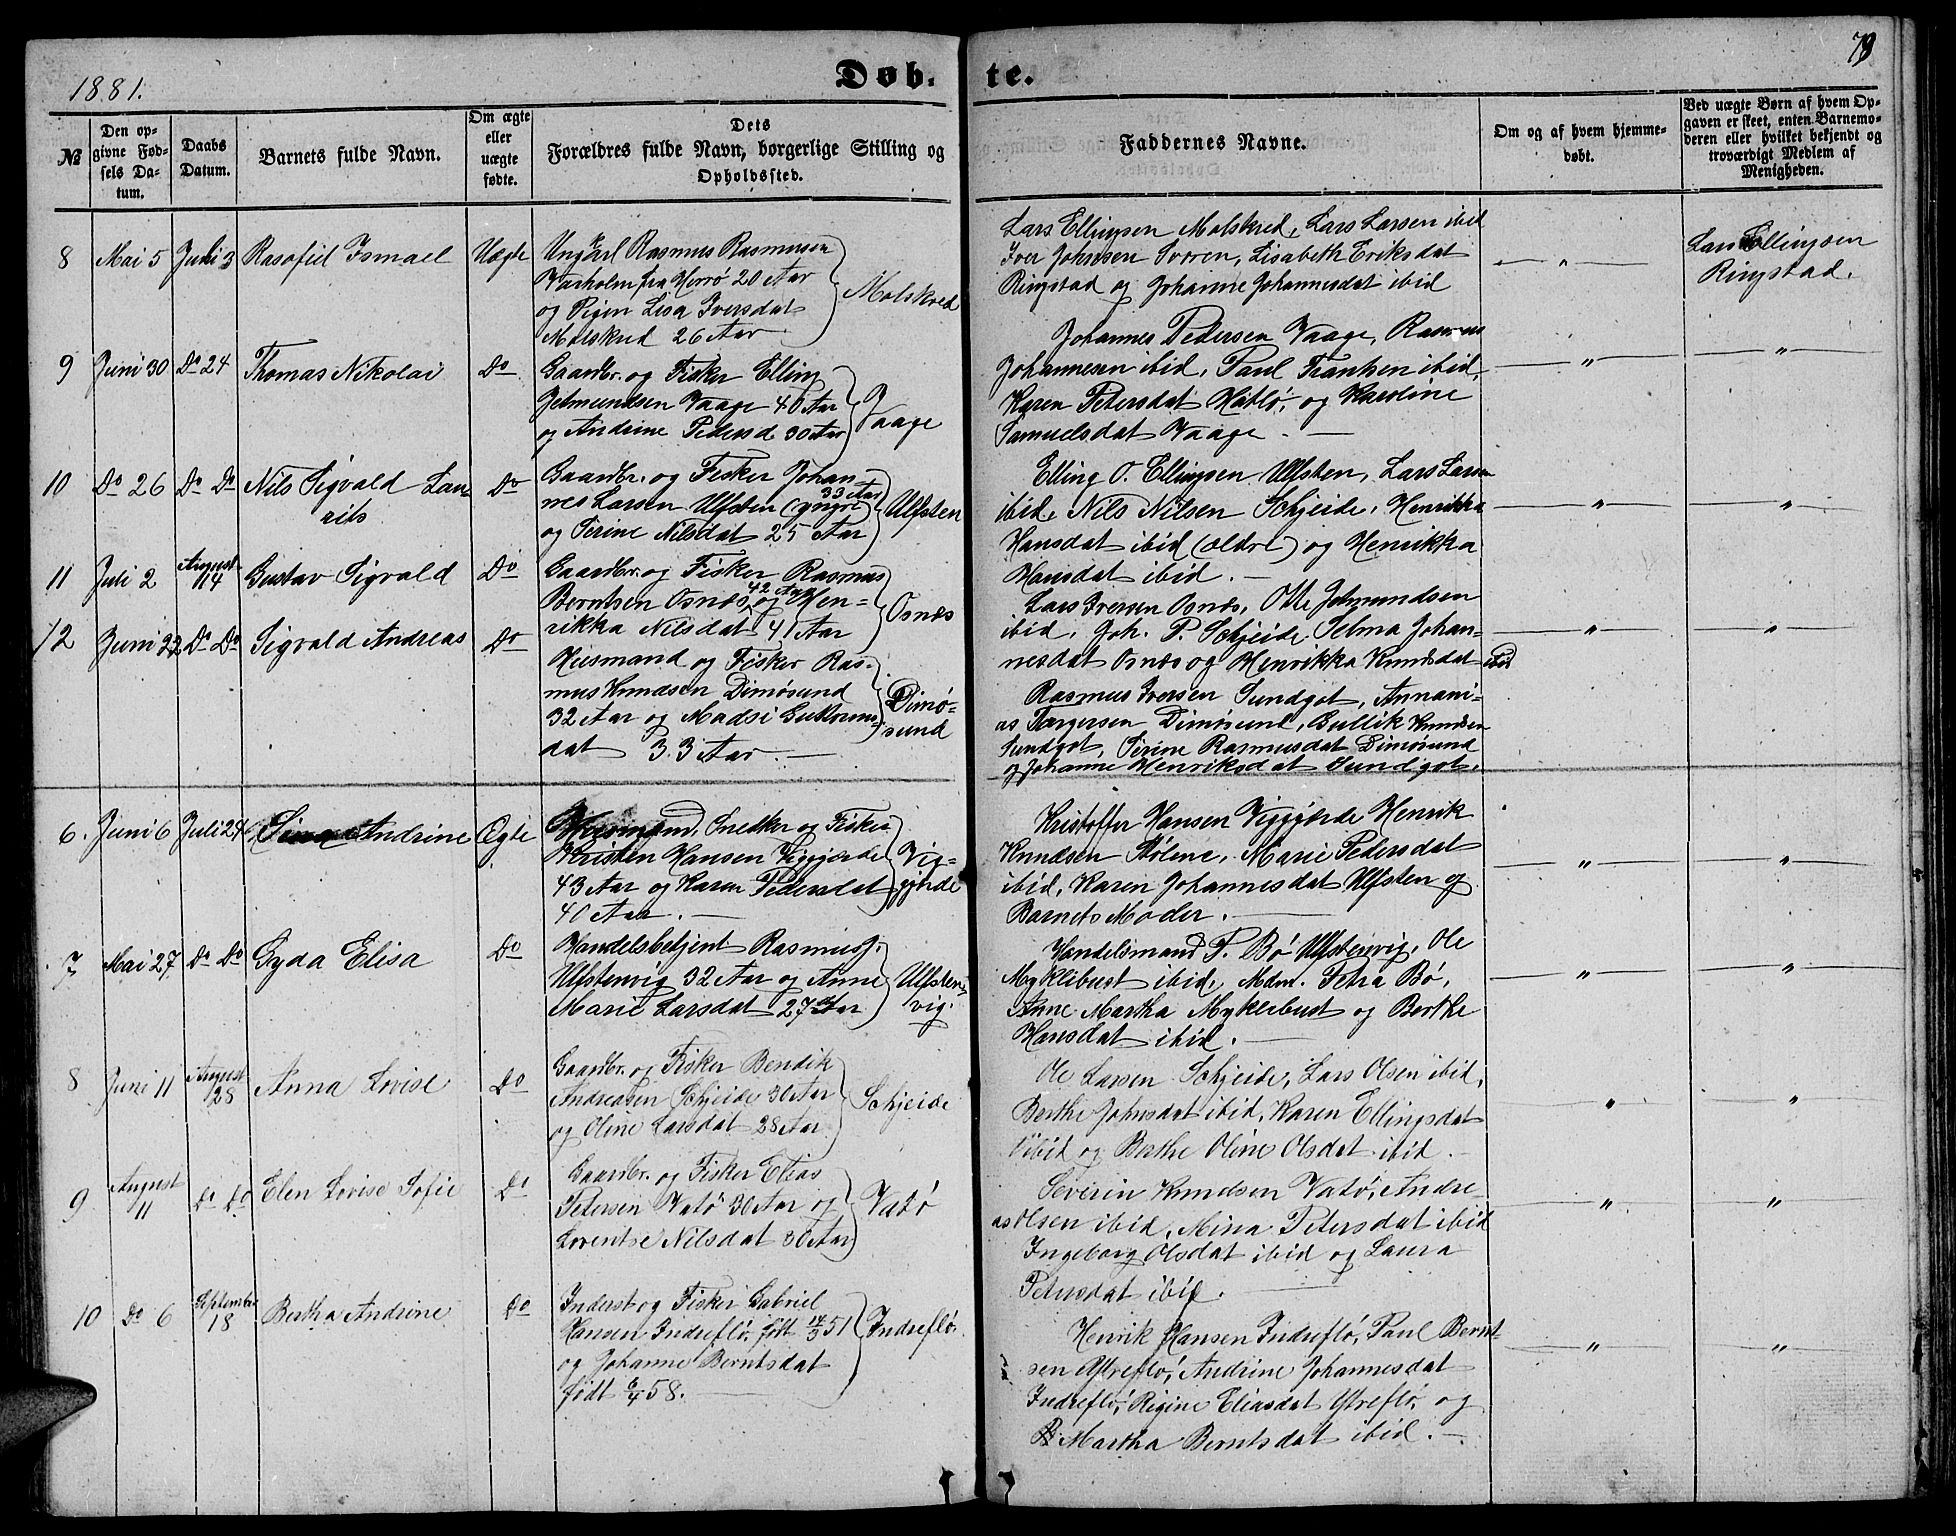 1881.
Døb-
te.
79
№
Den op-
givne Fød-
sels Da-
tum.
Daabs
Datum.
Barnets fulde Navn.
Om ægte
eller
uægte
fødte.
Dets
Forældres fulde Navn, borgerlige Stilling og
Opholdssted.
Faddernes Navne.
Om og af hvem hjemme-
døbt.
Ved uægte Børn af hvem Op-
gaven er skeet, enten Barnemo-
deren eller hvilket bekjendt og
troværdigt Medlem af
Menigheden.
8 Mai 5 Juli 3 Rasofiel Ismael Uægte
Ungkarl Rasmus Rasmusen
Vaxholm fra Herrø 20 Aar
og Pigen Lisa Iversdat
Molskred 26 Aar
Molskred
Lars Ellingsen Molskred, Lars Larsen ibid
Iver Johnsen Sorren, Lisabeth Eriksdat
Ringstad og Johanne Johannesdat ibid
"
Lars Ellingsen
Ringstad.
9 Juni 30 Do 24 Thomas Nikolai Do
Gaardbr. og Fisker Elling
Jetmundsen Vaage 40 Aar
og Andrine Pedersd 30 Aar
Vaage
Johannes Pedersen Vaage, Rasmus
Johannesen ibid, Paul Franksen ibid,
Karen Petersdat Hatlø, og Karoline
Samuelsdat Vaage.
" "
10 Do 26 Do Do Nils Sigvald Lau-
rits Do
Gaardbr. og Fisker Johan-
nes Larsen Ulfsten (yngre) 33 Aar
og Serine Nilsdat 25 Aar
Ulfsten
Elling O. Ellingsen Ulfsten, Lars Larsen
ibid, Nils Nilsen Schjeide, Henrikka
Hansdat ibid (ældre) og Henrikka
Hansdat ibid.
" "
11 Juli 2 August 14 Gustav Sigvald Do
Gaardbr. og Fisker Rasmus
Berntsen Osnæs, 42 Aar og Hen-
rikka Nilsdat 41 Aar
Osnæs
Lars Iversen Osnæs, Otte Jetmundsen
ibid, Joh. P. Schjeide, Selma Johan-
nesdat Osnæs og Henrikka Knudsdat ibid
" "
12 Juni 22 Do Do Sigvald Andreas Do
Husmand og Fisker Ras-
mus Knudsen Dimøsund
32 Aar og Madsi Guttorms-
dat 33 Aar.
Dimø-
sund
Rasmus Iversen Sundgot, Annani-
as Torgersen Dimøsund, Gullik Knudsen
Sundgot, Serine Rasmusdat Dimøsund
og Johanne Henriksdat Sundgot.
6. Juni 6 Juli 24 Andrine Ægte
Huusmand, Snedker og Fisker
Kristen Hansen Viggjørde
43 Aar og Karen Pedersdat
40 Aar.
Vig-
gjørde
Kristoffer Hansen Viggjørde Henrik
Knudsen Stølene, Marie Pedersdat
ibid, Karen Johannesdat Ulfsten og
Barnets Moder.
" "
7 Mai 27 Do Do Gyda Elisa Do
Handelsbetjent Rasmus J.
Ulfstenvig 32 Aar og Anne
Marie Larsdat 27 Aar
Ulfsten-
vig.
Handelsmand P. Bø Ulfstenvig, Ole
Myklebust ibid, Mdm. Petra Bø,
Anne Martha Myklebust og Berthe
Hansdat ibid.
" "
8 Juni 11 August 28 Anna Lovise Do
Gaardbr. og Fisker Bendik
Andreasen Schjeide 30 Aar
og Oline Larsdat 28 Aar
Schjeide
Ole Larsen Schjeide, Lars Olsen ibid,
Berthe Johnsdat ibid, Karen Ellingsdat
ibid og Berthe Oline Olsdat ibid.
" "
9 August 11 Do Do Elen Lovise Sofie Do
Gaardbr. og Fisker Elias
Petersen Vatø 30 Aar og
Lorentse Nilsdat 30 Aar
Vatø
Severin Knudsen Vatø, Andre-
as Olsen ibid, Mina Petersdat ibid
Ingeborg Olsdat ibid og Laura
Petersdat ibid.
" "
10 Do 6 September 18 Bertha Andrine Do
Inderst og Fisker Gabriel
Hansen Indreflø, født 14/3 51
og Johanne Berntsdat
født 6/4 58.
Indreflø
Henrik Hansen Indreflø, Paul Bernt-
sen Ytreflø, Andrine Johannesdat
Indreflø, Rigine Eliasdat Ytreflø, og
Martha Berntsdat ibid.
" "